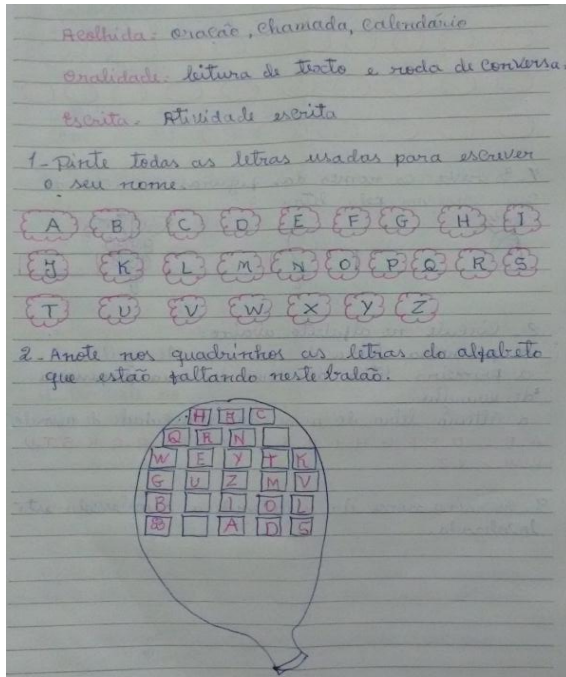 Acolhida: oração, chamada, calendário
Oralidade: leitura de texto e roda de conversa.
Escrita. Atividade escrita
1- Pinte todas as letras usadas para escrever
o seu nome.
A B C D E F G H I
J K L M N O P Q R S
T U V W X Y Z
2- Anote nos quadrinhos as letras do alfabeto
que estão faltando neste balão.
H J C
Q R N
W E Y T K
G U Z M V
B I O L
A D S